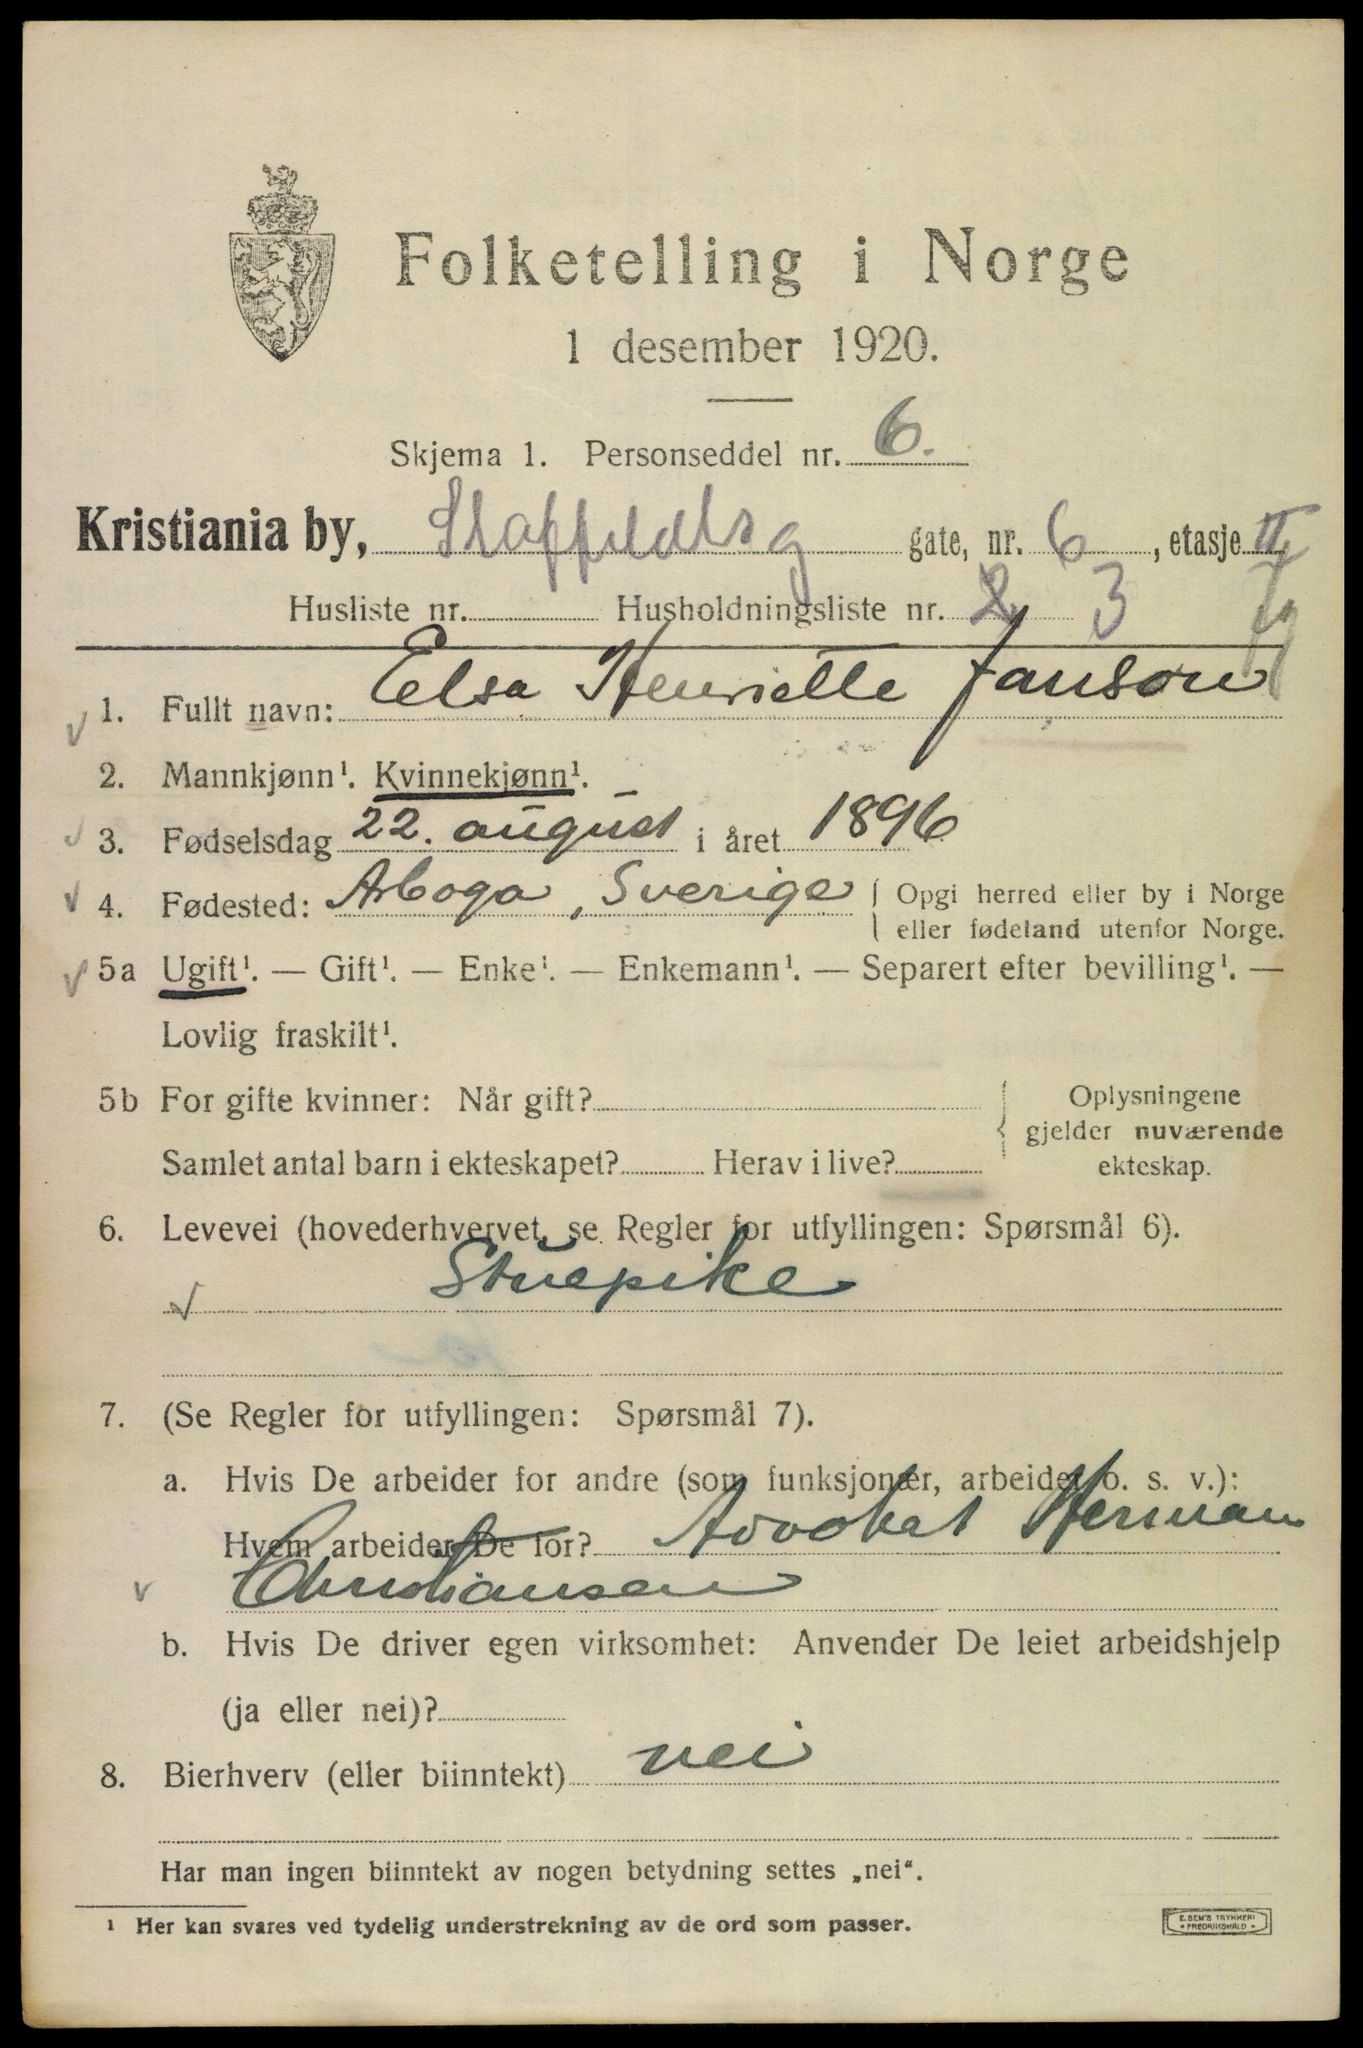 Folketelling i Norge
1 desember 1920.
Skjema 1. Personseddel nr. 6.
Kristiania by, Staffeldtsg gate, nr. 6, etasje II
Husliste nr. Husholdningsliste nr. 2 3
1. Fullt navn: Elsa Henriette Janson
2. Mannkjønn¹. Kvinnekjønn¹.
3. Fødselsdag 22. august i året 1896
4. Fødested: Arboga, Sverige { Opgi herred eller by i Norge
eller fødeland utenfor Norge.
5a Ugift¹. — Gift¹. — Enke¹. — Enkemann¹. — Separert efter bevilling¹. —
Lovlig fraskilt¹.
5b For gifte kvinner: Når gift? { Oplysningene
gjelder nuværende
Samlet antal barn i ekteskapet? Herav i live? ekteskap.
6. Levevei (hovederhvervet, se Regler for utfyllingen: Spørsmål 6).
Stuepike
7. (Se Regler for utfyllingen: Spørsmål 7).
a. Hvis De arbeider for andre (som funksjonær, arbeider o. s. v.):
Hvem arbeider De for? Advokat Herman
Christiansen
b. Hvis De driver egen virksomhet: Anvender De leiet arbeidshjelp
(ja eller nei)?
8. Bierhverv (eller biinntekt) nei
Har man ingen biinntekt av nogen betydning settes „nei“.
¹ Her kan svares ved tydelig understrekning av de ord som passer.
E. SEM'S TRYKKERI
FREDRIKSHALD